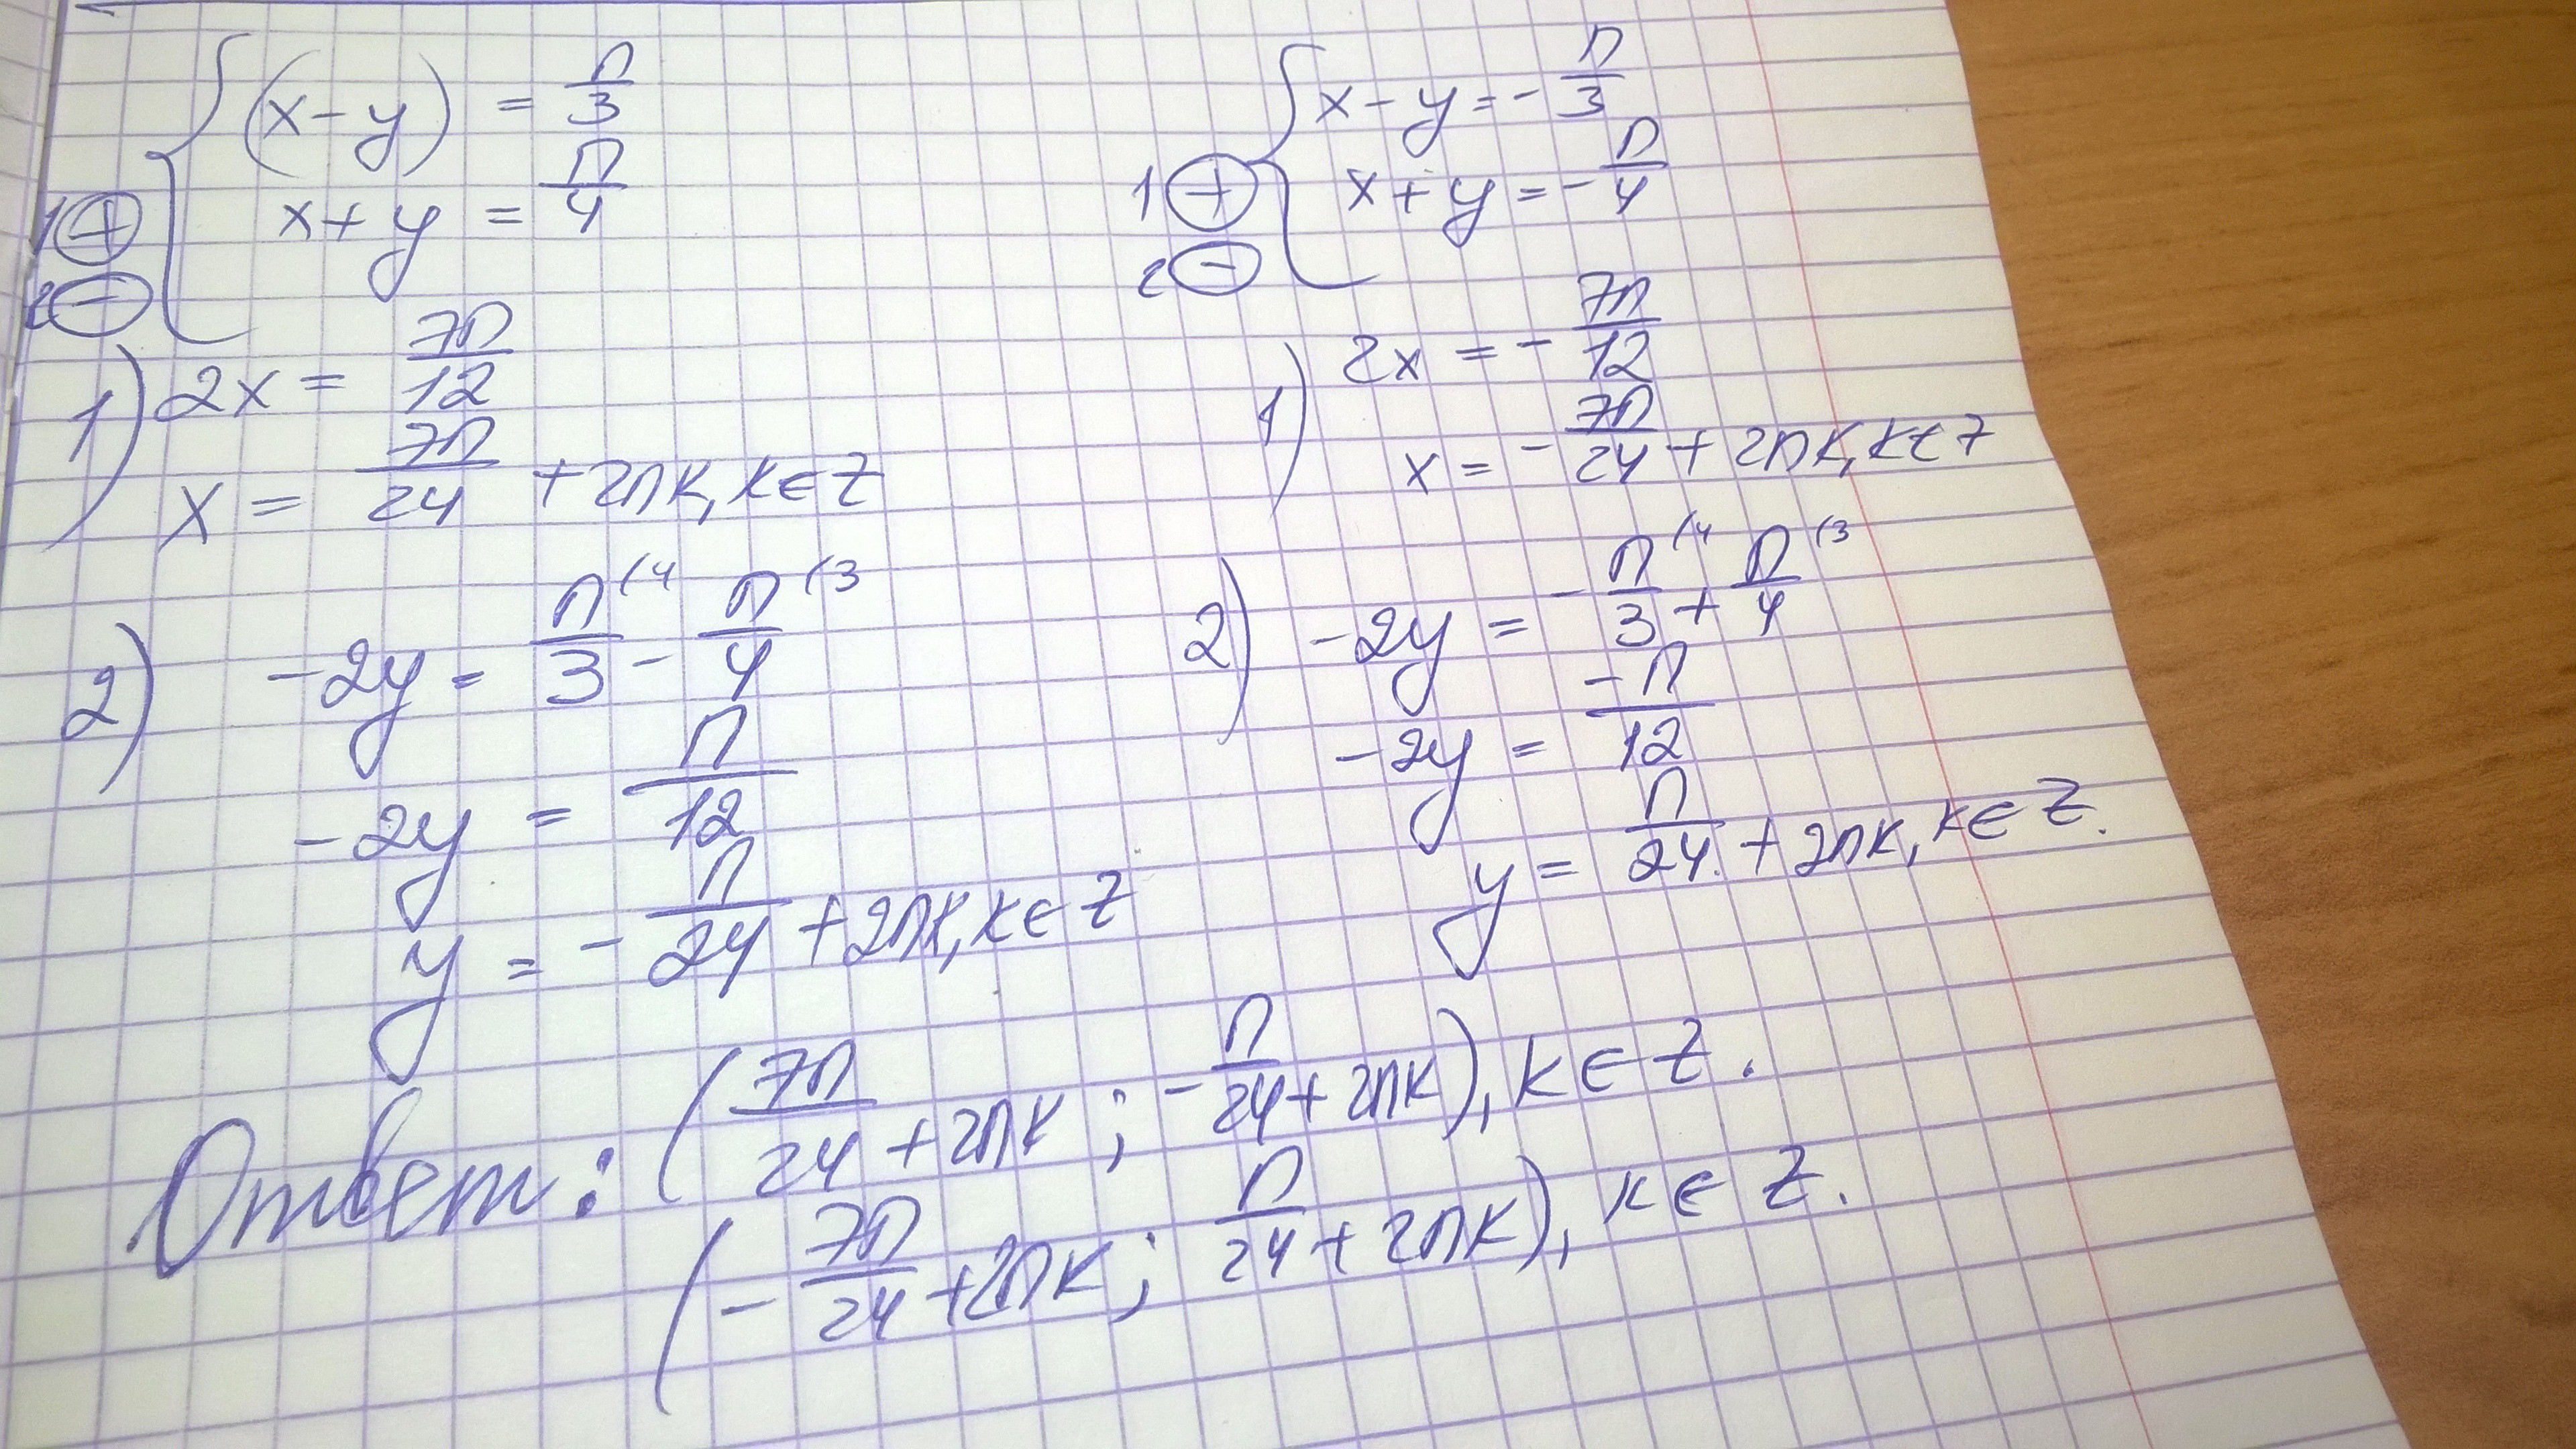 { (x-y) = π/3
x+y = π/4
1 ⊕
2 ⊖
1) 2x = 7π/12
x = 7π/24 + 2πk, k∈Z
2) -2y = π/3 (4 - π/4 (3
-2y = π/12
y = - π/24 + 2πk, k∈Z
{ x-y = - π/3
x+y = - π/4
1 ⊕
2 ⊖
1) 2x = - 7π/12
x = - 7π/24 + 2πk, k∈Z
2) -2y = - π/3 (4 + π/4 (3
-2y = -π/12
y = π/24 + 2πk, k∈Z.
Ответ: (7π/24 + 2πk ; - π/24 + 2πk), k∈Z.
(- 7π/24 + 2πk ; π/24 + 2πk), k∈Z.